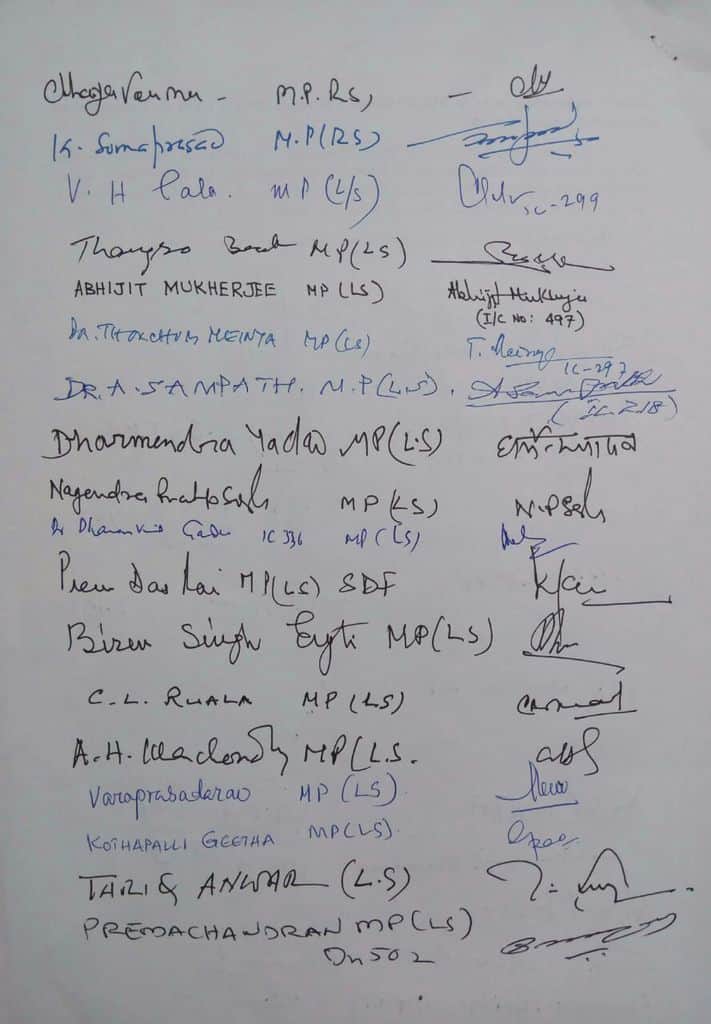 Chhaya Verma - M.P. RS,
K. Somaprasad M.P(RS)
V. H Pala. MP (L/S) IC-299
Thangso Baite MP(LS)
ABHIJIT MUKHERJEE MP (LS) Abhijit Mukherjee
(I/C No: 497)
DR. THOKCHOM MEINYA MP (LS) T. Meinya
IC-297
DR. A. SAMPATH. M.P(L.S). A Sampath
(IC 218)
Dharmendra Yadav MP(L.S) धर्मेन्द्र यादव
Nagendra Singh MP (LS) N.P Singh
Dr IC 336 MP (LS)
Prem Das Rai MP(LS) SDF
Biren Singh Engti MP(LS)
C. L. RUALA MP (LS)
A. H. MP(L.S.
Varaprasadarao MP (LS)
KOTHAPALLI GEETHA MP(LS).
TARIQ ANWAR (L.S)
PREMACHANDRAN MP(LS)
Dn 502